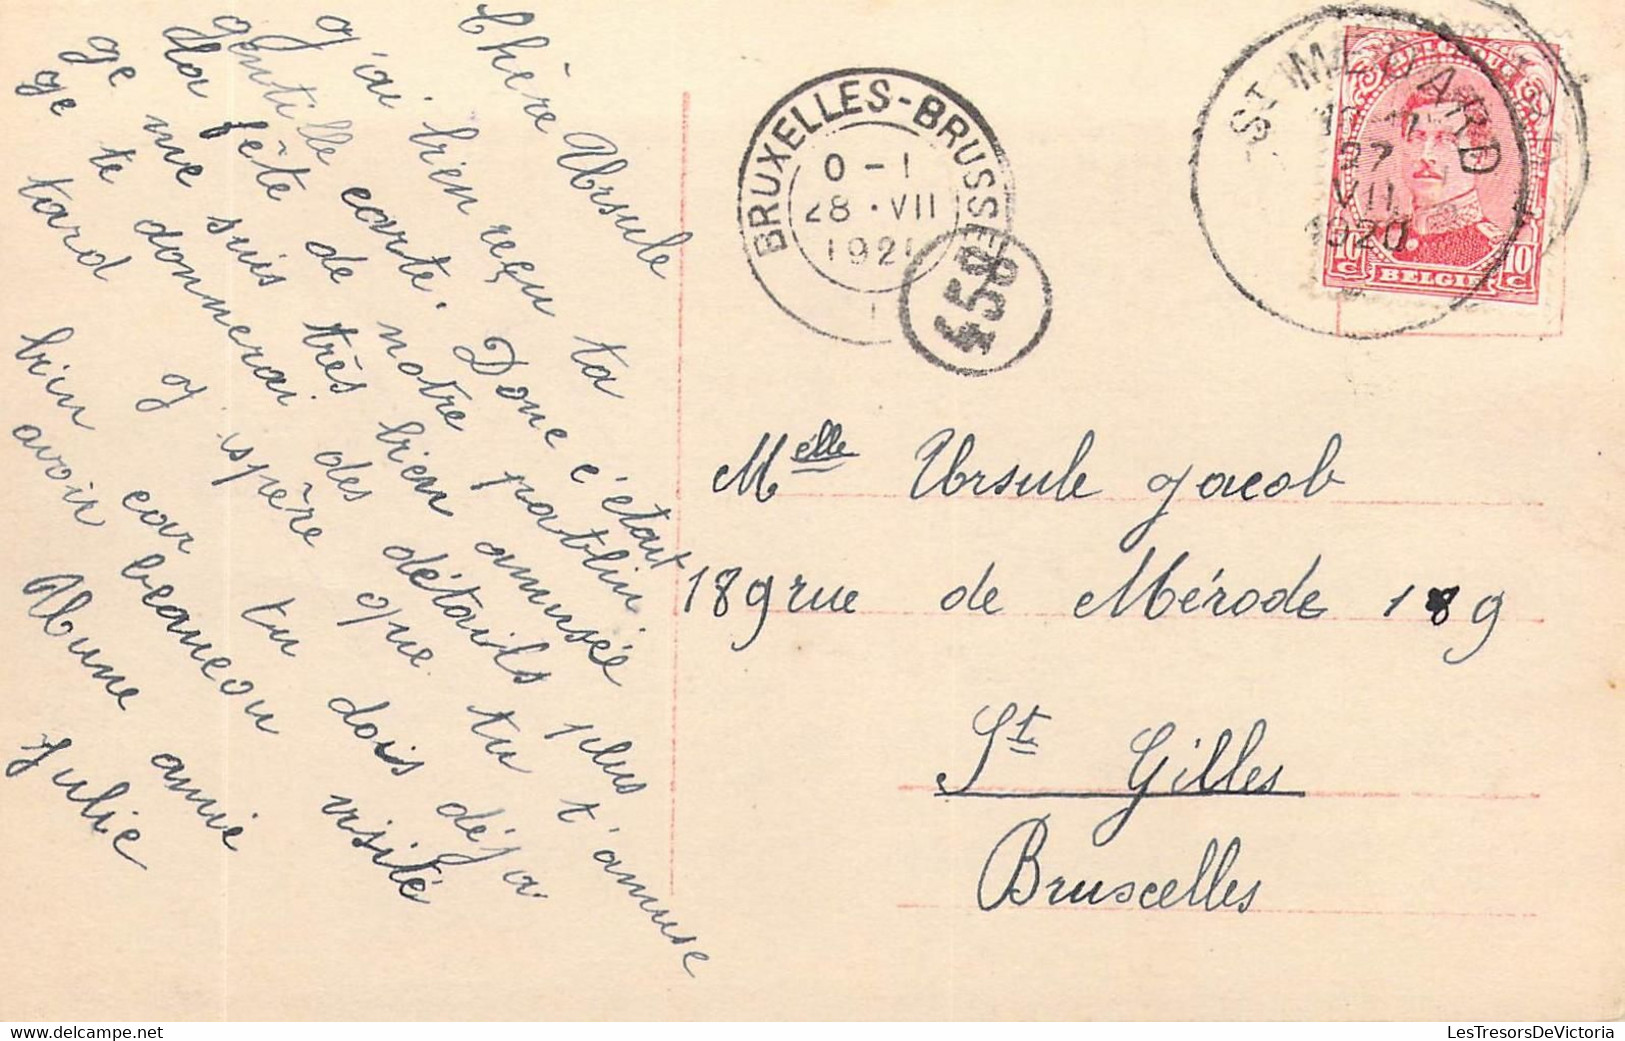 Chère Ursule
J'ai bien reçu ta
gentille carte. Donc c'était
la fête de notre patelin
Je me suis très bien amusée
je te donnerai des détails plus
tard J'ispère que tu t'amuse
bien car tu dois déja
avoir beaucoup visité
Une amie
Julie
BRUXELLES-BRUSSEL
0-1
28·VII
192
458
ST MEDARD
27
VII
1920
BELGIQUE
10c
10c
BELGIE
Melle Ursule Jacob
189 rue de Mérode 189
St Gilles
Bruxcelles
LesTresorsDeVictoria